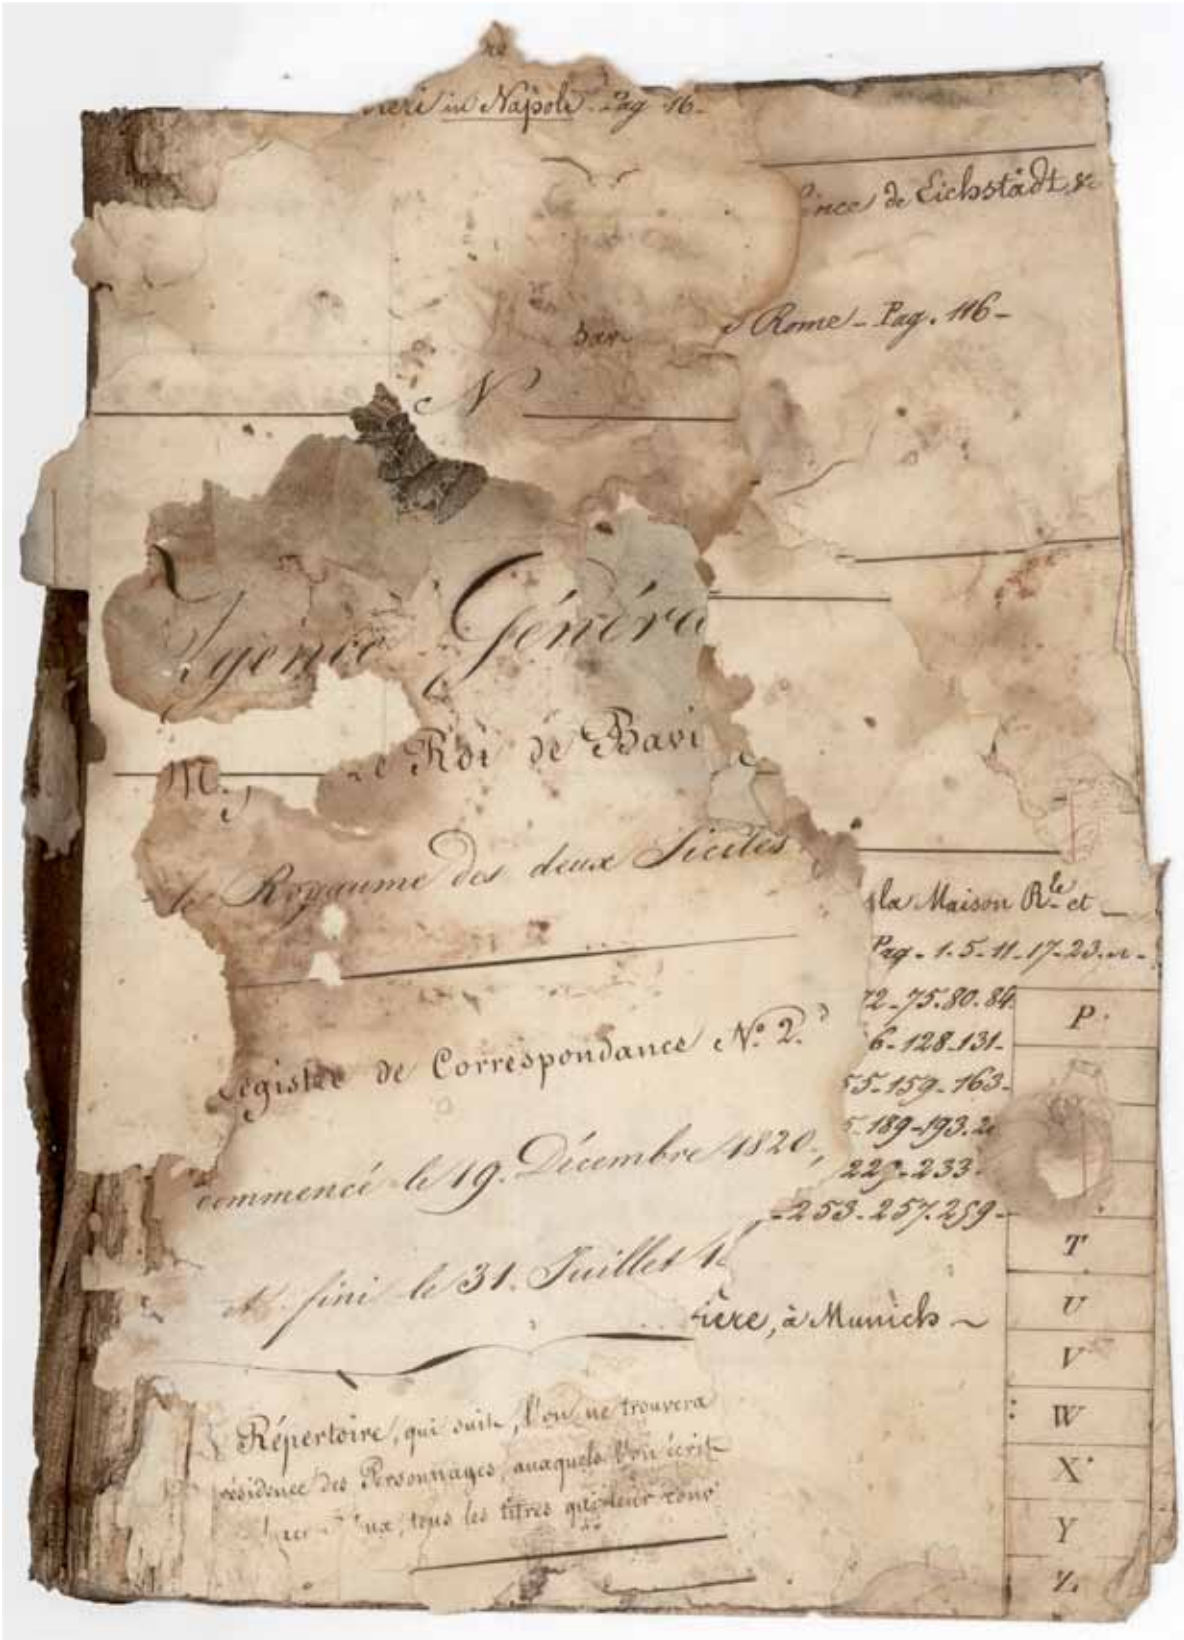 in Napole. Pag. 16.
de Eichstädt, &
Rome - Pag. 116 -
N
Agence Généra
M. le Roi de Bavi
le Royaume des deux Siciles
la Maison Rle et
Pag. 1. 5. 11. 17. 23.
72. 75. 80. 84.
6. 128. 131.
55. 159. 163.
189. 193.
229. 233.
253. 257. 259.
Registre de Correspondance No. 2.d
commencé le 19. Décembre 1820,
et fini le 31. Juillet 1
ière, à Munich
Répertoire, qui suit, l'on ne trouvera
résidence des Personnages, auxquels l'on écrit
tous les titres qui leur conv
P.
T
U
V
W
X
Y
Z.